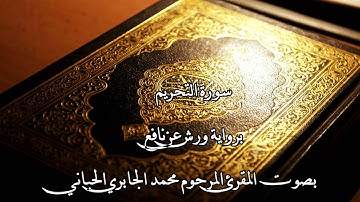 سورة التحريم
برواية ورش عن نافع
بصوت المقرئ المرحوم محمد الجابري الحياني